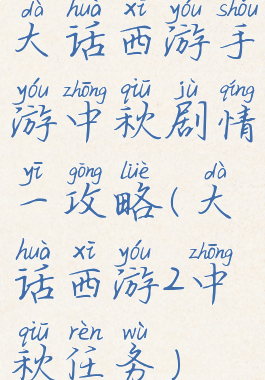 dà huà xī yóu shǒu
大话西游手
yóu zhōng qiū jù qíng
游中秋剧情
yī gōng lüè dà
一攻略(大
huà xī yóu zhōng
话西游2中
qiū rèn wù
秋任务)